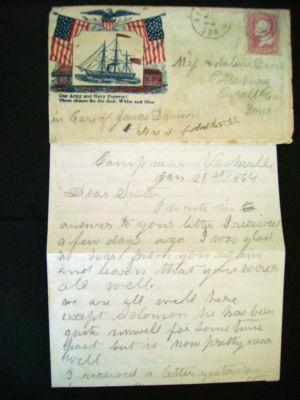 Our Army and Navy Forever!
Three cheers for the Red, White and Blue
Adaline Davi
Pittsburg
Carroll Co
in Care of James Davison
Camp near Nashville
Jan 21st/864
Dear Sister
I write in
answer to your letter I received
a few days ago I was glad
to hear from you again
and learn that you were
all well
we are all well here
except Solomon he has been
quite unwell for some time
past but is now pretty near
well
I received a letter yesterday